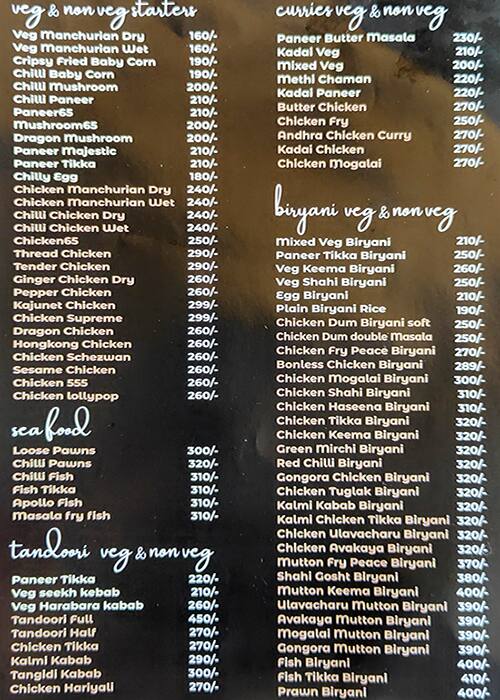 veg & non veg starters
Veg Manchurian Dry 160/-
Veg Manchurian Wet 160/-
Cripsy Fried Baby Corn 190/-
Chilli Baby Corn 190/-
Chilli Mushroom 200/-
Chilli Paneer 210/-
Paneer65 210/-
Mushroom65 200/-
Dragon Mushroom 200/-
Paneer Majestic 210/-
Paneer Tikka 210/-
Chilly Egg 180/-
Chicken Manchurian Dry 240/-
Chicken Manchurian Wet 240/-
Chilli Chicken Dry 240/-
Chilli Chicken Wet 240/-
Chicken65 250/-
Thread Chicken 290/-
Tender Chicken 290/-
Ginger Chicken Dry 260/-
Pepper Chicken 260/-
Kajunet Chicken 299/-
Chicken Supreme 299/-
Dragon Chicken 260/-
Hongkong Chicken 260/-
Chicken Schezwan 260/-
Sesame Chicken 260/-
Chicken 555 260/-
Chicken lollypop 260/-
sea food
Loose Pawns 300/-
Chilli Pawns 320/-
Chilli Fish 310/-
Fish Tikka 310/-
Apollo Fish 310/-
Masala fry fish 310/-
tandoori veg & non veg
Paneer Tikka 220/-
Veg seekh kebab 210/-
Veg Harabara kabab 260/-
Tandoori Full 450/-
Tandoori Half 270/-
Chicken Tikka 270/-
Kalmi Kabab 290/-
Tangidi Kabab 300/-
Chicken Hariyali 270/-
curries veg & non veg
Paneer Butter Masala 230/-
Kadai Veg 210/-
Mixed Veg 200/-
Methi Chaman 220/-
Kadai Paneer 220/-
Butter Chicken 270/-
Chicken Fry 250/-
Andhra Chicken Curry 270/-
Kadai Chicken 270/-
Chicken Mogalai 270/-
biryani veg & non veg
Mixed Veg Biryani 210/-
Paneer Tikka Biryani 250/-
Veg Keema Biryani 260/-
Veg Shahi Biryani 250/-
Egg Biryani 210/-
Plain Biryani Rice 190/-
Chicken Dum Biryani soft 250/-
Chicken Dum double Masala 250/-
Chicken Fry Peace Biryani 270/-
Bonless Chicken Biryani 289/-
Chicken Mogalai Biryani 300/-
Chicken Shahi Biryani 310/-
Chicken Haseena Biryani 310/-
Chicken Tikka Biryani 320/-
Chicken Keema Biryani 320/-
Green Mirchi Biryani 320/-
Red Chilli Biryani 320/-
Gongora Chicken Biryani 320/-
Chicken Tuglak Biryani 320/-
Kalmi Kabab Biryani 320/-
Kalmi Chicken Tikka Biryani 320/-
Chicken Ulavacharu Biryani 320/-
Chicken Avakaya Biryani 320/-
Mutton Fry Peace Biryani 370/-
Shahi Gosht Biryani 380/-
Mutton Keema Biryani 400/-
Ulavacharu Mutton Biryani 390/-
Avakaya Mutton Biryani 390/-
Mogalai Mutton Biryani 390/-
Gongora Mutton Biryani 390/-
Fish Biryani 400/-
Fish Tikka Biryani 410/-
Prawn Biryani 400/-